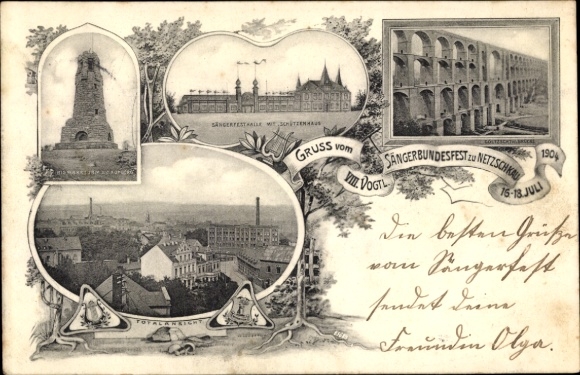 SÄNGERFESTHALLE MIT SCHÜTZENHAUS
GÖLTZSCHTALBRÜCKE
GRUSS vom
VIII. VOGTL.
SÄNGERBUNDESFEST zu NETZSCHKAU
1904
16-18. JULI
TOTALANSICHT
Die besten Grüße
vom Sängerfest
sendet Deine
Freundin Olga.